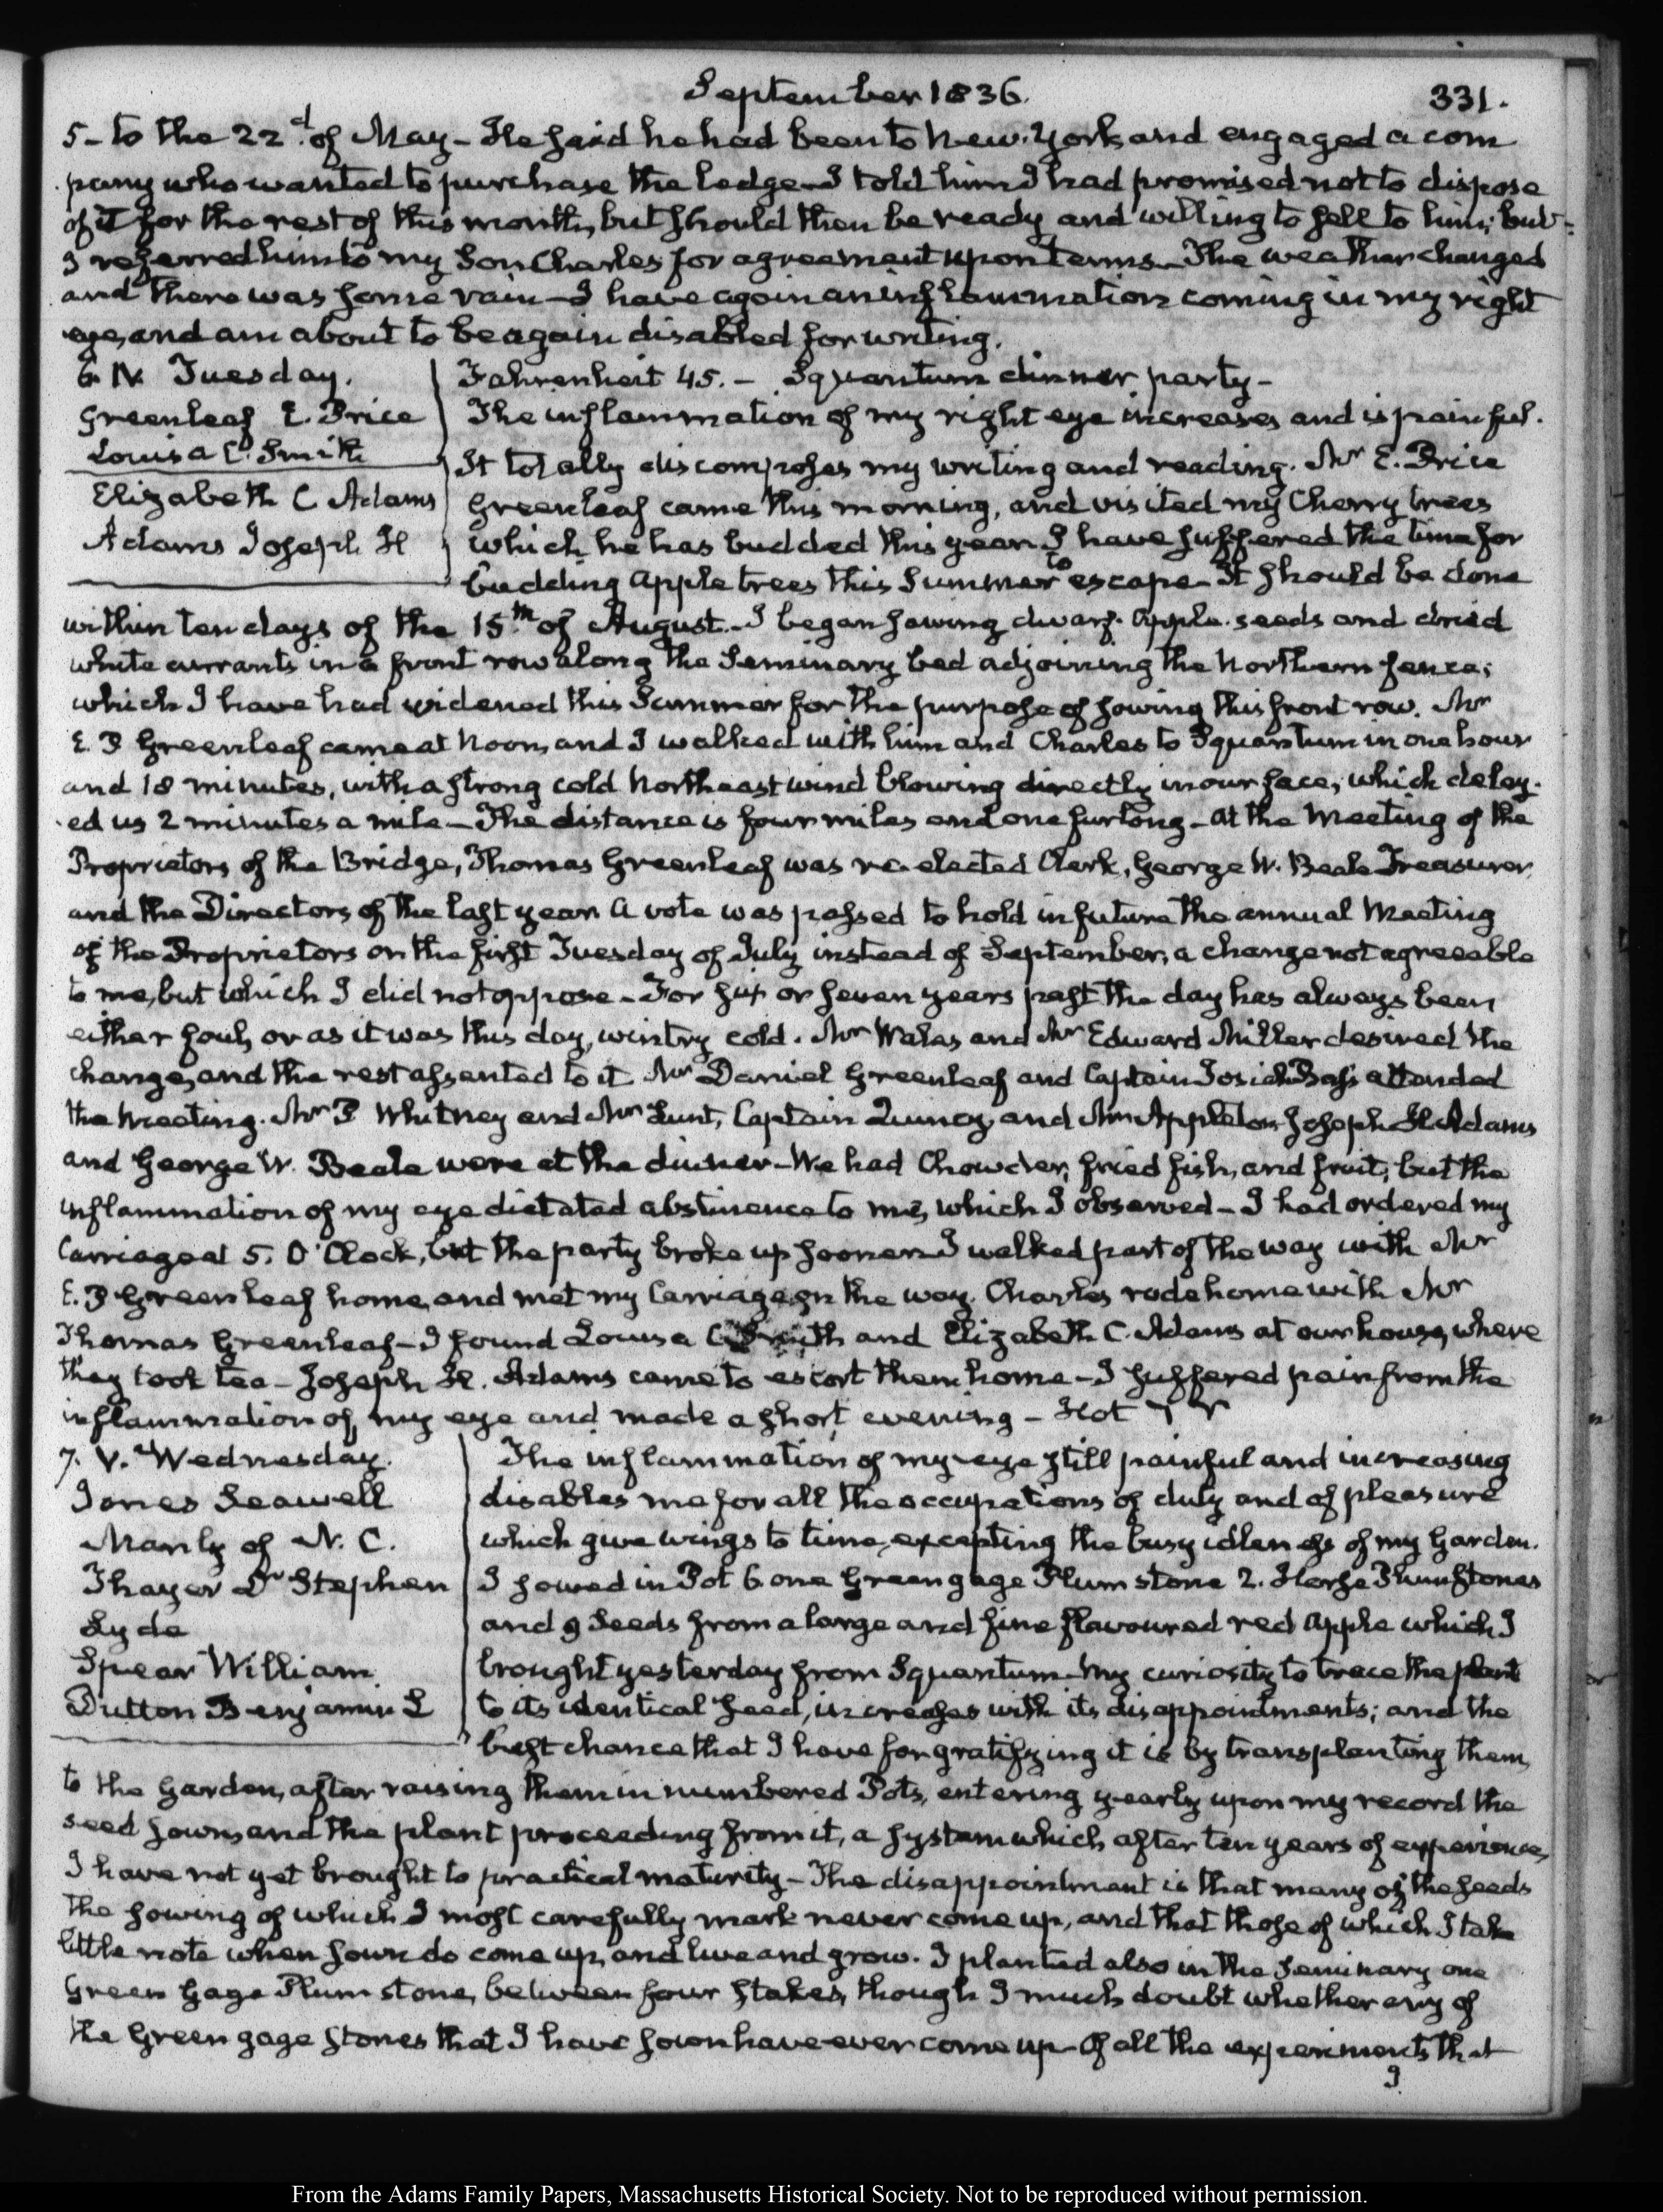 September 1836.
331.
5 - to the 22d. of May - He said he had been to New-York, and engaged a com
pany who wanted to purchase the ledge - I told him I had promised not to dispose
of it for the rest of this month, but should then be ready and willing to sell to him; but
I referred him to my Son Charles for agreement upon terms - The weather changed
and there was some rain - I have again an inflammation coming in my right
eye, and am about to be again disabled for writing.
6. IV. Tuesday.
Greenleaf E. Price
Louisa C. Smith
Elizabeth C Adams
Adams Joseph H
Fahrenheit 45. - Squantum dinner party -
The inflammation of my right eye increases and is painful.
It totally discomposes my writing and reading. Mr E. Price
Greenleaf came this morning, and visited my Cherry trees
which he has budded this year. I have suffered the time for
budding Apple trees this Summer to escape - It should be done
within ten days of the 15th. of August. - I began sowing dwarf. Apple. seeds and dried
white currants in a front row along the Seminary bed adjoining the Northern fence;
which I have had widened this Summer for the purpose of sowing this front row. Mr
E. P Greenleaf came at Noon, and I walked with him and Charles to Squantum in one hour
and 18 minutes, with a strong cold Northeast wind blowing directly in our face, which delay-
ed us 2 minutes a mile - The distance is four miles and one furlong - At the Meeting of the
Proprietors of the Bridge, Thomas Greenleaf was re-elected Clerk, George W. Beale Treasurer
and the Directors of the last year. A vote was passed to hold in future the annual Meeting
of the Proprietors on the first Tuesday of July instead of September, a change not agreeable
to me, but which I did not oppose - For six or seven years past the day has always been
either foul, or as it was this day, wintry cold. Mr Wales and Mr Edward Miller desired the
change, and the rest assented to it. Mr Daniel Greenleaf and Captain Josiah Bass attended
the Meeting. Mr P Whitney and Mr Lunt, Captain Quincy, and Mr Appleton Joseph H. Adams
and George W. Beale were at the dinner - We had Chowder, fried fish, and fruit; but the
inflammation of my eye dictated abstinence to me, which I observed - I had ordered my
Carriage at 5. O'Clock, but the party broke up sooner. I walked part of the way with Mr
E. P Greenleaf home, and met my Carriage on the way. Charles rode home with Mr
Thomas Greenleaf - I found Louisa C. Smith and Elizabeth C. Adams at our house, where
they took tea - Joseph H. Adams came to escort them home - I suffered pain from the
inflammation of my eye and made a short evening - Hot
7. V. Wednesday.
Jones Seawell
Manly of N. C.
Thayer Dr Stephen
Lyde
Spear William
Dutton Benjamin L
The inflammation of my eye still painful and increasing
disables me for all the occupations of duty and of pleasure
which give wings to time, excepting the busy idleness of my Garden.
I sowed in Pot 6. one Green gage Plum stone 2. Horse Plum stones
and 9 Seeds from a large and fine flavoured red Apple which I
brought yesterday from Squantum - My curiosity to trace the plant
to its identical seed, increases with its disappointments; and the
best chance that I have for gratifying it is by transplanting them,
to the Garden, after raising them in numbered Pots, entering yearly upon my record the
seed sown, and the plant proceeding from it, a system which after ten years of experience,
I have not yet brought to practical maturity - The disappointment is that many of the seeds
the sowing of which I most carefully mark never come up, and that those of which I take
little note when sown do come up, and live and grow. I planted also in the Seminary one
Green Gage Plum stone, between four stakes, though I much doubt whether any of
the Green gage stones that I have sown have ever come up - Of all the experiments that
I